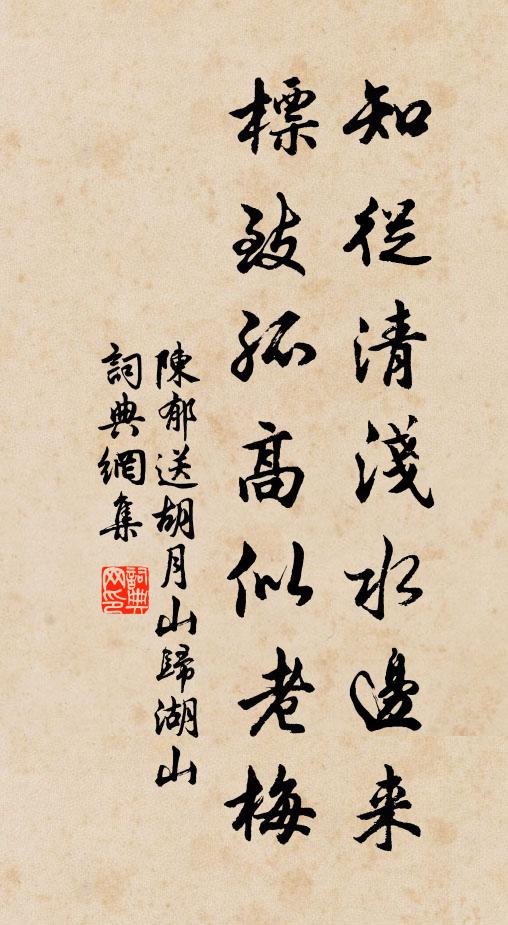 知從清淺水邊来
標致孤高似老梅
陳郁送胡月山歸湖山
詞典網集
詞典
网印